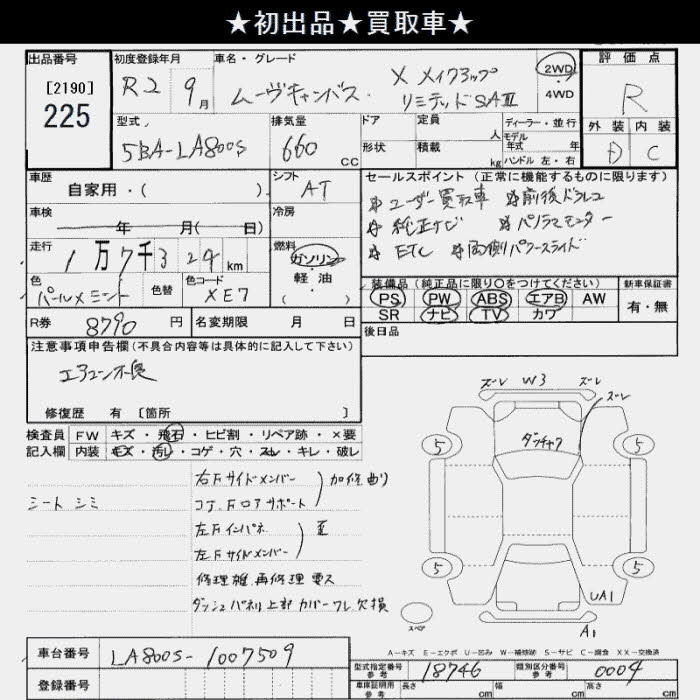 ★初出品★買取車★
出品番号
[2190]
225
初度登録年月
R2 9月
車名・グレード
ムーヴキャンバス・
X メイクアップ
リミテッドSAⅢ
2WD
・
4WD
評価点
R
外装 内装
D C
型式
5BA-LA800S
排気量
660 CC
ドア
形状
定員 人
積載 kg
ディーラー・並行
モデル
年式 年
ハンドル 左・右
車歴
自家用・( )
シフト
AT
車検
年 月( 日)
冷房
走行
1万7千324km
燃料
ガソリン
軽・油
・( )
色
パールメミント
色替
色コード
XE7
セールスポイント (正常に機能するものに限ります)
ユーザー買取車 前後ドラレコ
純正ナビ パノラマモニター
ETC 両側パワースライド
装備品 (純正品に限り○をつけてください)
PS PW ABS エアB AW
SR ナビ TV カワ
新車保証書
有・無
R券 8790円
名変期限 月 日
後日品
注意事項申告欄(不具合内容等は具体的に記入して下さい)
エアコン不良
修復歴 有 [箇所 ]
検査員 FW キズ・飛石・ヒビ割・リペア跡・×要
記入欄 内装 キズ・汚レ・コゲ・穴・スレ・キレ・破レ
シート シミ
右Fサイドメンバー
コア、フロアサポート
加修曲り
左Fインパネ
左Fサイドメンバー
歪
修理雑 再修理要ス
ダッシュパネル上部カバーワレ欠損
ズレ W3 ズレ
ズレ
ダッチャク
5 5
5 5
UA1
A1
スペア
A-キズ E-エクボ U-凹み W-補修跡 S-サビ C-腐食 XX-交換済
車台番号 LA800S-1007509
登録番号
型式指定番号
参考
18746
類別区分番号
参考
0004
車庫証明用
参考
長さ cm 幅 cm 高さ cm